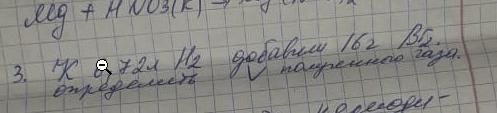 Mg + HNO3(к) →
3. К 6,72л H2 добавили 16г Br2.
определить V полученного газа.